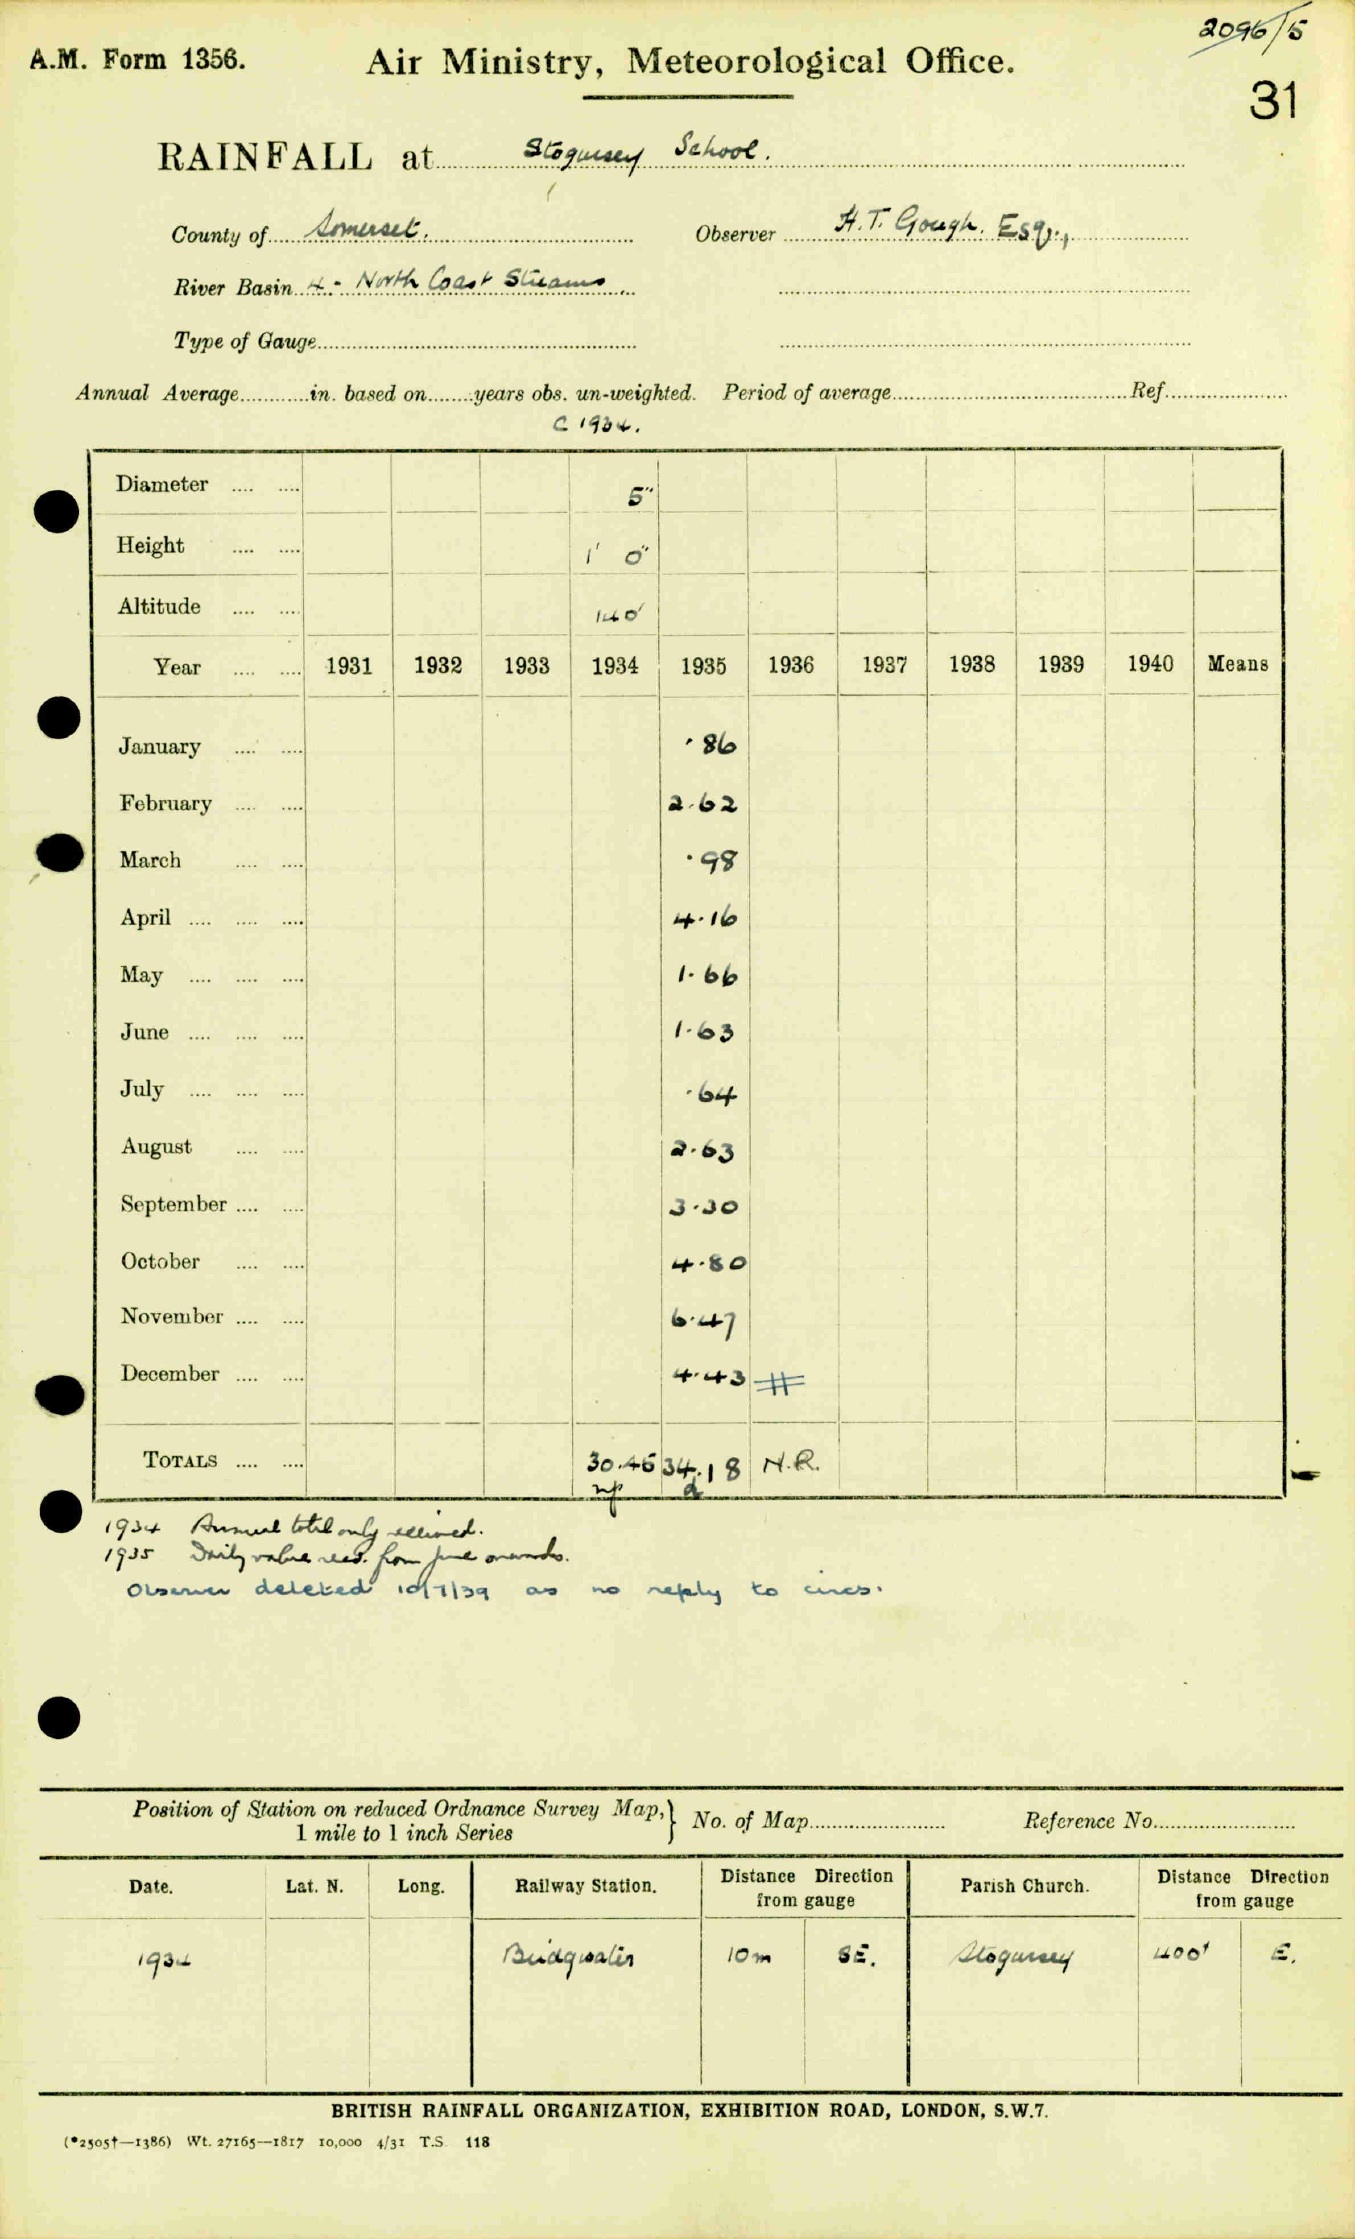 2096/5
A.M. Form 1356. Air Ministry, Meteorological Office.
31
RAINFALL at Stogursey School.
County of Somerset. Observer H.T. Gough. Esq.,
River Basin 4 - North Coast Streams
Type of Gauge
Annual Average in. based on years obs. un-weighted. Period of average Ref.
C 1934.
Diameter 5"
Height 1' 0"
Altitude 140'
Year 1931 1932 1933 1934 1935 1936 1937 1938 1939 1940 Means
January ·86
February 2·62
March ·98
April 4·16
May 1·66
June 1·63
July ·64
August 2·63
September 3·30
October 4·80
November 6·47
December 4·43
TOTALS 30.45 34.18 N.R.
np d
1934 Annual total only received.
1935 Daily values recd. from June onwards.
Observer deleted 10/7/39 as no reply to circs.
Position of Station on reduced Ordnance Survey Map, } No. of Map Reference No.
1 mile to 1 inch Series
Date. Lat. N. Long. Railway Station. Distance Direction from gauge Parish Church. Distance Direction from gauge
1934 Bridgwater 10m SE. Stogursey 400' E.
BRITISH RAINFALL ORGANIZATION, EXHIBITION ROAD, LONDON, S.W.7.
(*2505†—1386) Wt. 27165—1817 10,000 4/31 T.S. 118